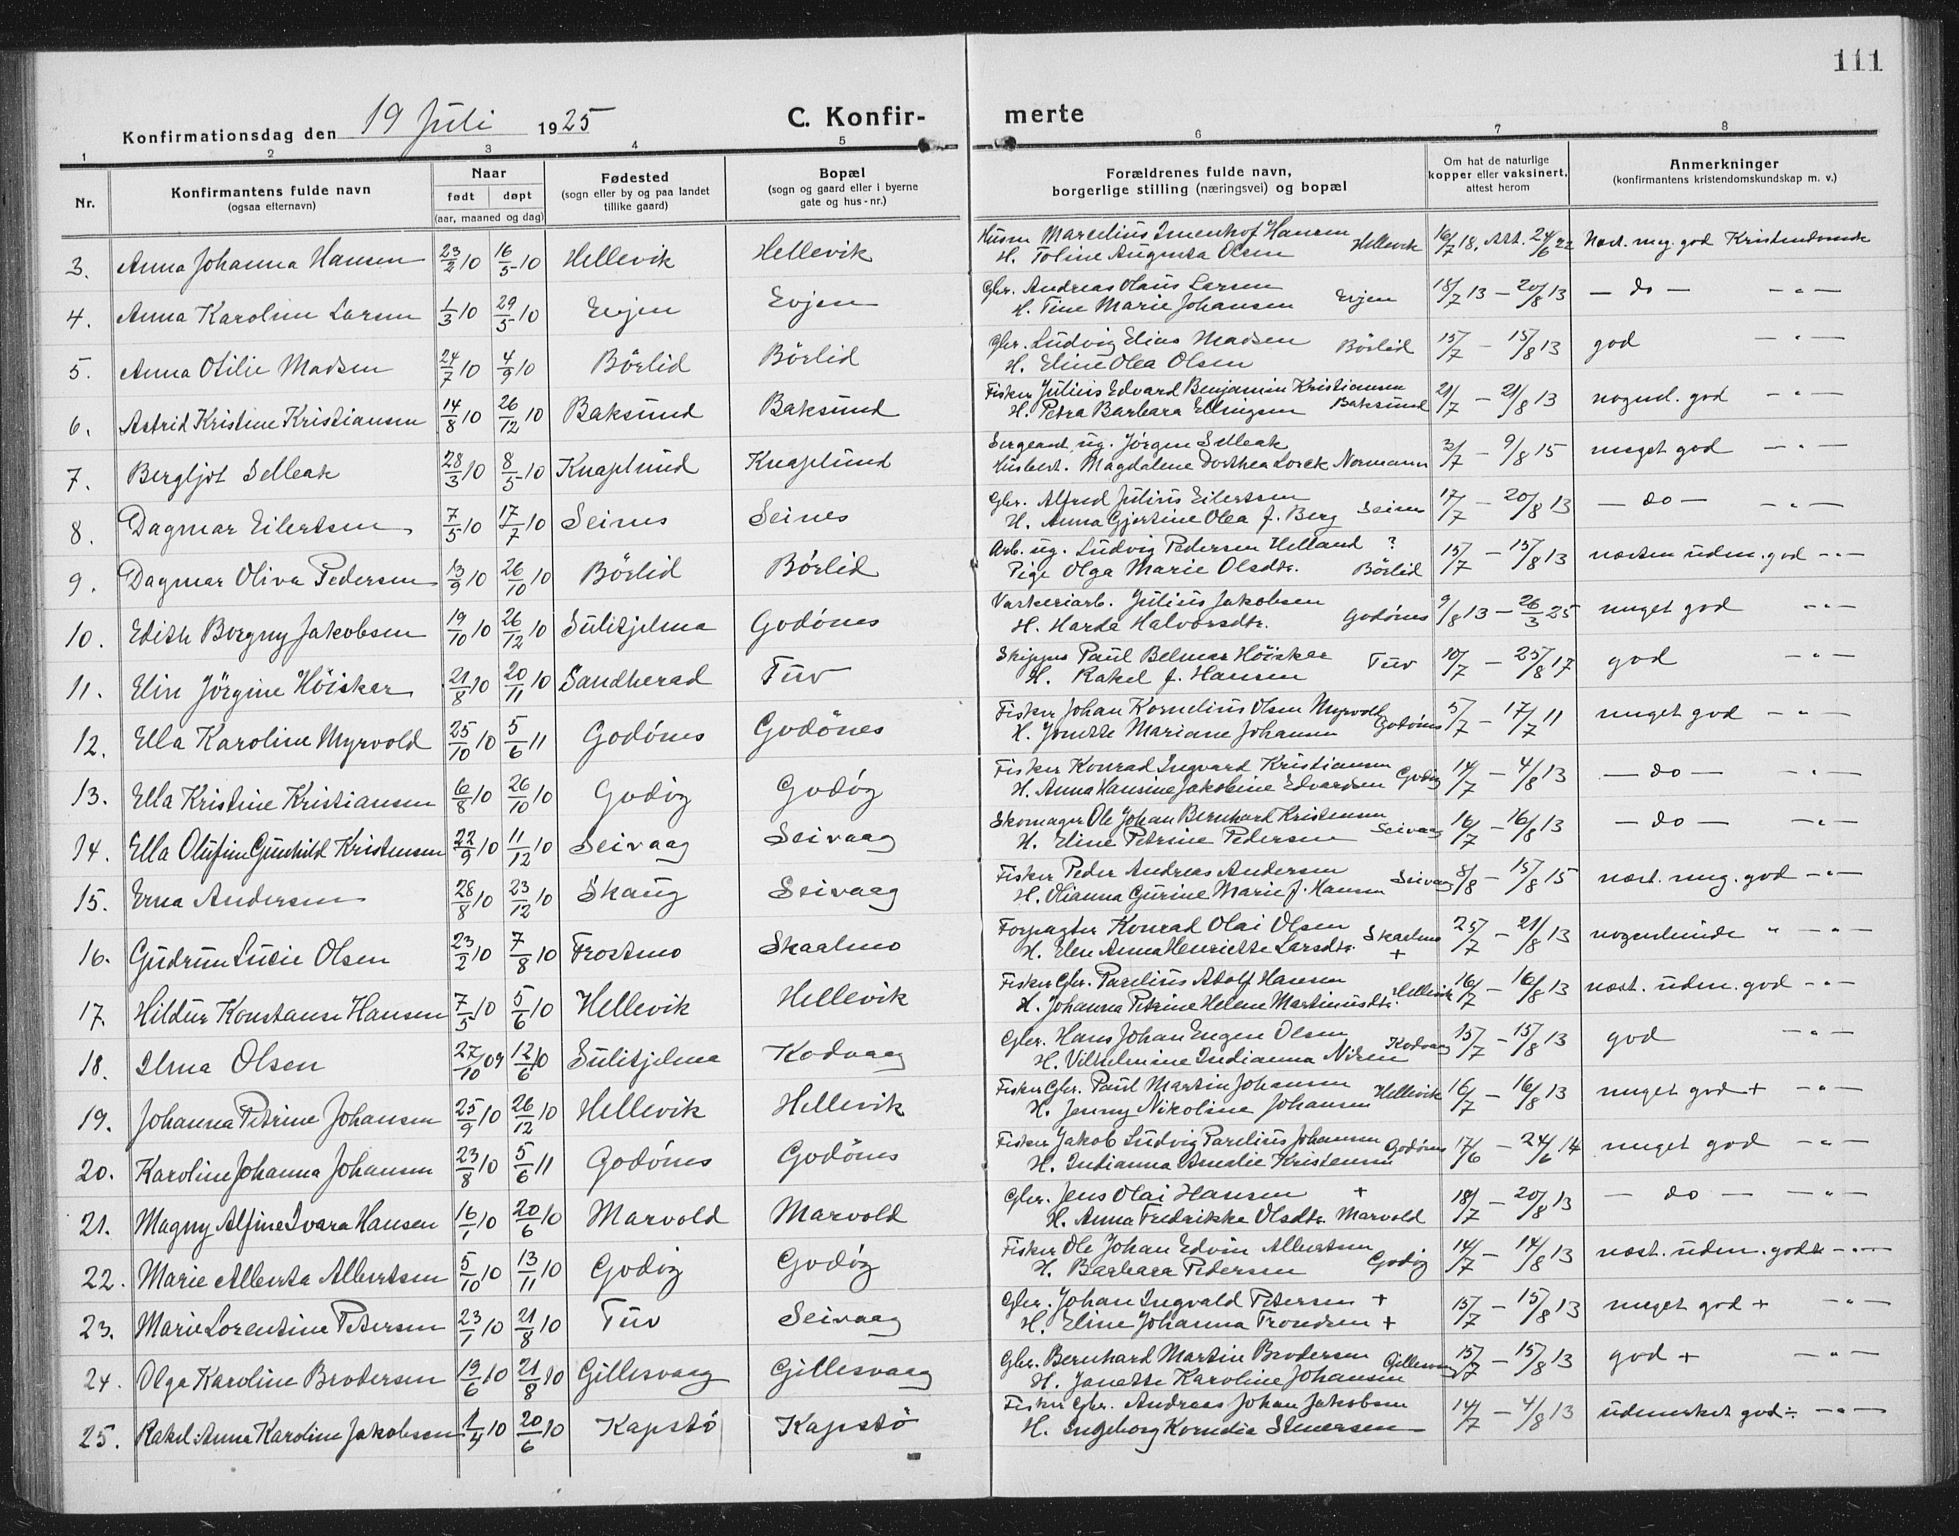 111
Konfirmationsdag den 19 Juli 1925 C. Konfir- merte
1 2 3 4 5 6 7 8
Nr. Konfirmantens fulde navn (ogsaa efternavn) Naar født døpt (aar, maaned og dag) Fødested (sogn eller by og paa landet tillike gaard) Bopæl (sogn og gaard eller i byerne gate og hus-nr.) Forældrenes fulde navn, borgerlige stilling (næringsvei) og bopæl Om hat de naturlige kopper eller vaksinert, attest herom Anmerkninger (konfirmantens kristendomskundskap m. v.)
3. Anna Johanna Hansen 23/2 10 16/5 10 Hellevik Hellevik Husm Marcelius Imenhof Hansen
H. Toline Augusta Olsen Hellevik 16/7 18, Att. 24/6 22 Næst. meg. god Kristendomsk
4. Anna Karoline Larsen 1/3 10 29/5 10 Evjen Evjen Gbr. Andreas Olaus Larsen
H. Tine Marie Johansen Evjen 18/7 13 — 20/8 13 — do — — " —
5. Anna Otilie Madsen 24/7 10 4/9 10 Börlid Börlid Gbr. Ludvig Elias Madsen
H. Eline Olea Olsen Börlid 15/7 — 15/8 13 god — " —
6. Astrid Kristine Kristiansen 14/8 10 26/12 10 Baksund Baksund Fisker Julius Edvard Benjamin Kristiansen
H. Petra Barbara Ellingsen Baksund 21/7 — 21/8 13 nogenl. god — " —
7. Bergljot Selleak 28/3 10 8/5 10 Knaplund Knaplund Sergeant ug. Jörgen Selleak
Husbest. Magdalene Dorthea Lorck Normann 3/7 — 9/8 15 meget god — " —
8. Dagmar Eilertsen 7/5 10 17/7 10 Seines Seines Gbr. Alfred Julius Eilertsen
H. Anna Gjertine Olea f. Berg Seines 17/7 — 20/8 13 — do — — " —
9. Dagmar Oliva Pedersen 13/9 10 26/10 10 Börlid Börlid Arb. ug. Ludvig Pedersen Helland ?
Pige Olga Marie Olsdtr. Börlid 15/7 — 15/8 13 næsten uden. god — " —
10. Edith Borgny Jakobsen 19/10 10 26/12 10 Sulitjelma Godönes Vaskeriarb. Julius Jakobsen
H. Harda Halvorsdtr. Godönes 9/8 13 — 26/3 25 meget god — " —
11. Elin Jörgine Höisker 21/8 10 20/11 10 Sandherad Tuv Skipper Paul Belmar Höisker
H. Rakel f. Hansen Tuv 10/7 — 25/8 17 god — " —
12. Ella Karoline Myrvold 25/10 10 5/6 11 Godönes Godönes Fisker Johan Kornelius Olsen Myrvold
H. Jonette Mariane Johansen Godönes 5/7 — 17/7 11 meget god — " —
13. Ella Kristine Kristiansen 6/8 10 26/10 10 Godöy Godöy Fisker Konrad Ingvard Kristiansen
H. Anna Hansine Jakobine Edvardsen Godöy 14/7 — 4/8 13 — do — — " —
14. Ella Olufine Gunhild Kristensen 22/9 10 11/12 10 Seivaag Seivaag Skomager Ole Johan Bernhard Kristensen
H. Eline Petrine Pedersen Seivaag 16/7 — 16/8 13 — do — — " —
15. Erna Andersen 28/8 10 23/12 10 Skaug Seivaag Fisker Peder Andreas Andersen
H. Olianna Gurine Marie f. Hansen Seivaag 8/8 — 15/8 15 næst. meg. god — " —
16. Gudrun Lucie Olsen 23/2 10 7/8 10 Frostmo Skaalmo Forpagter Konrad Olai Olsen
H. Elen Anna Henriette Larsdtr. Skaalmo + 25/7 — 21/8 13 nogenlunde " — " —
17. Hildur Konstanse Hansen 7/5 10 5/6 10 Hellevik Hellevik Fisker Gbr. Parelius Adolf Hansen
H. Johanna Petrine Helene Martinusdtr. Hellevik 16/7 — 16/8 13 næst. uden. god — " —
18. Irma Olsen 27/10 09 12/6 10 Sulitjelma Kodvaag Gbr. Hans Johan Engen Olsen
H. Vilhelmine Indianna Nilsen Kodvaag 15/7 — 15/8 13 god — " —
19. Johanna Petrine Johansen 25/9 10 26/12 10 Hellevik Hellevik Fisker Gbr. Paul Martin Johansen
H. Jenny Nikoline Johansen Hellevik 16/7 — 16/8 13 meget god + — " —
20. Karoline Johanna Johansen 23/8 10 5/6 11 Godönes Godönes Fisker Jakob Ludvig Parelius Johansen
H. Indianna Amalie Kristensen Godönes 17/6 — 24/6 14 meget god — " —
21. Magny Alfine Ivara Hansen 16/1 10 20/6 10 Marvold Marvold Gbr. Jens Olai Hansen +
H. Anna Fredrikke Olsdtr. Marvold 18/7 — 20/8 13 — do — — " —
22. Marie Alberta Albertsen 5/10 10 13/11 10 Godöy Godöy Fisker Ole Johan Edvin Albertsen
H. Barbara Pedersen Godöy 14/7 — 14/8 13 næst. uden. god — " —
23. Marie Lorentine Petersen 23/1 10 21/8 10 Tuv Seivaag Gbr. Johan Ingvald Petersen +
H. Eline Johanna Trondsen + 15/7 — 15/8 13 meget god + — " —
24. Olga Karoline Brodersen 19/6 10 21/8 10 Gillesvaag Gillesvaag Gbr. Bernhard Martin Brodersen
H. Janette Karoline Johansen Gillesvaag 15/7 — 15/8 13 god + — " —
25. Rakel Anna Karoline Jakobsen 1/4 10 20/6 10 Kapstö Kapstö Fisker Gbr. Andreas Johan Jakobsen
H. Ingeborg Kornelia Steversen 14/7 — 4/8 13 udmerket god ÷ — " —